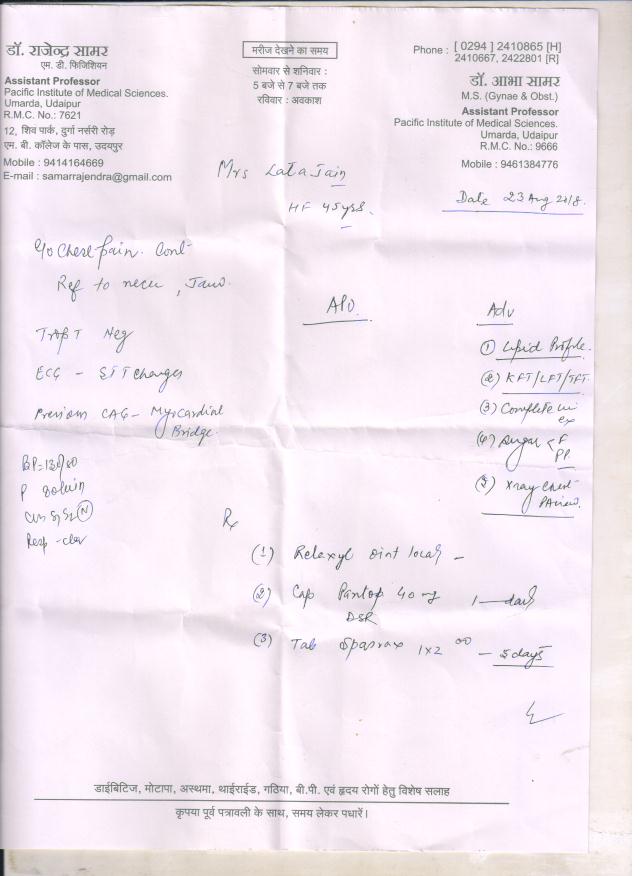 डॉ. राजेन्द्र सामर
एम. डी. फिजिशियन
Assistant Professor
Pacific Institute of Medical Sciences.
Umarda, Udaipur
R.M.C. No.: 7621
12, शिव पार्क, दुर्गा नर्सरी रोड़
एम. बी. कॉलेज के पास, उदयपुर
Mobile : 9414164669
E-mail : samarrajendra@gmail.com
मरीज देखने का समय
सोमवार से शनिवार :
5 बजे से 7 बजे तक
रविवार : अवकाश
Phone : [ 0294 ] 2410865 [H]
2410667, 2422801 [R]
डॉ. आभा सामर
M.S. (Gynae & Obst.)
Assistant Professor
Pacific Institute of Medical Sciences.
Umarda, Udaipur
R.M.C. No.: 9666
Mobile : 9461384776
Mrs Lata Jain
Date 23 Aug 2018.
45yrs.
Chest pain.
Ref to neck, Jaw.
Trop T Neg
ECG - ST T changes
Previous CAG - Myocardial
Bridge.
BP = 130/80
P 80/min
CVS S1 S2 (N)
Resp - clear
Adv
(1) Lipid Profile.
(2) KFT/LFT/TFT.
(3) Complete
(4) Sugar < F
PP
(5) Xray Chest
PA view.
Rx
(1) Relaxyl oint local -
(2) Cap Pantop 40 mg
DSR
(3) Tab 1x2 - 5 days
डाईबिटिज, मोटापा, अस्थमा, थाईराईड, गठिया, बी.पी. एवं हृदय रोगों हेतु विशेष सलाह
कृपया पूर्व पत्रावली के साथ, समय लेकर पधारें।